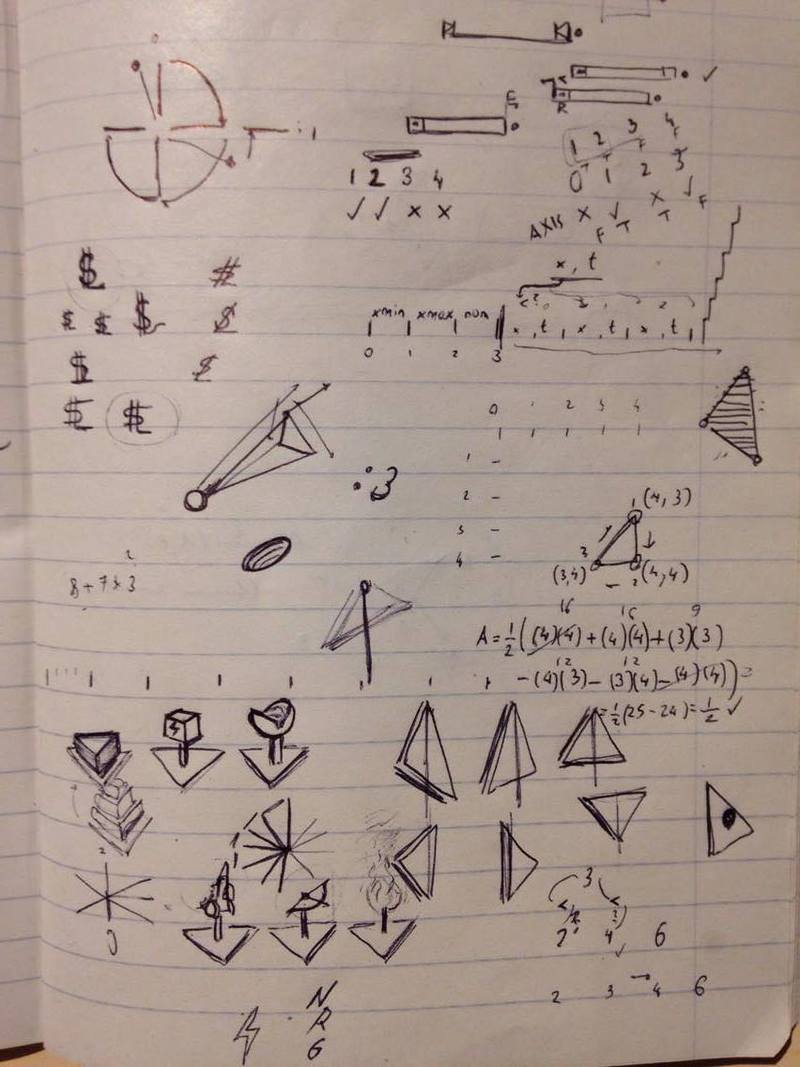 E
R
✓
1 2 3 4
1 2 3 4
0 1 2 3
✓ ✓ x x
AXIS x ✓ x ✓
F T T F
x, t
$ #
$ $ $ $
xmin xmax num x, t, x, t, x, t,
0 1 2 3
$ $
$ $
0 1 2 3 4
1
2
3
4
:3
1 (4,3)
3 2
(3,4) (4,4)
8+7x3
2
16 16 9
A=½((4)(4)+(4)(4)+(3)(3)
12 12
-(4)(3)-(3)(4)-(4)(4))=
=½(25-24)=½ ✓
2
0
3
2 4 6
2 3 → 4 6
N
R
G